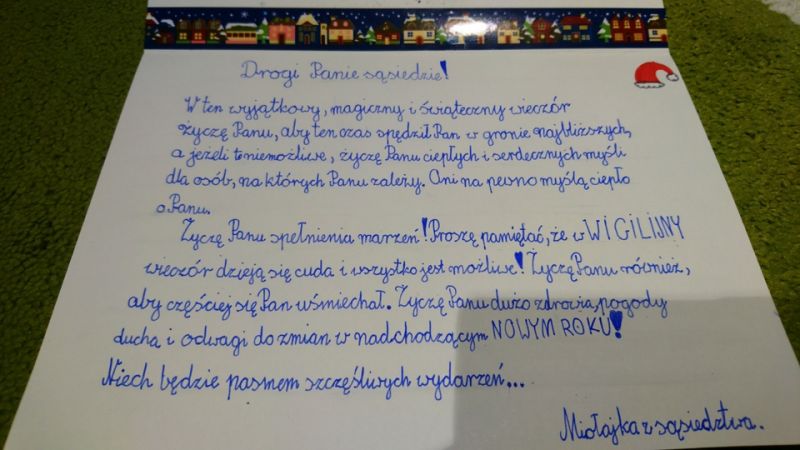 Drogi Panie sąsiedzie!
W ten wyjątkowy, magiczny i świąteczny wieczór
życzę Panu, aby ten czas spędził Pan w gronie najbliższych,
a jeżeli to niemożliwe, życzę Panu ciepłych i serdecznych myśli
dla osób, na których Panu zależy. Oni na pewno myślą ciepło
o Panu.
Życzę Panu spełnienia marzeń! Proszę pamiętać, że w WIGILIJNY
wieczór dzieją się cuda i wszystko jest możliwe! Życzę Panu również,
aby częściej się Pan uśmiechał. Życzę Panu dużo zdrowia, pogody
ducha i odwagi do zmian w nadchodzącym NOWYM ROKU!
Niech będzie pasmem szczęśliwych wydarzeń...
Miołajka z sąsiedztwa.